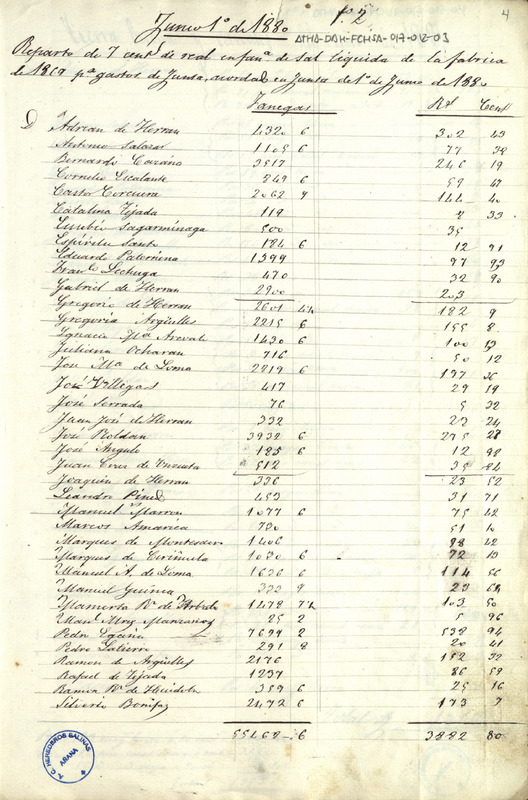 Junio 1º de 1880
fº 2
4
ATHA-DAH-FCHSA-017-012-03
Reparto de 7 centº de real en fanª de sal liquida de la fabrica
de 1869 pª gastos de Junta, acordado en Junta del 1º de Junio de 1880
Fanegas Rº Cent
D Adrian de Herran 4320 6 302 43
Antonio Salazar 1105 6 77 38
Bernardo Cazáno 3517 246 19
Cornelio Escalante 849 6 59 47
Casto Corcuera 2062 9 144 40
Catalina Tejada 119 8 33
Eusebio Sagarminaga 500 35
Espiritu Santo 184 6 12 91
Eduardo Paternina 1399 97 93
Franco Lechuga 470 32 90
Gabriel de Herran 2900 203
Gregorio de Herran 2601 182 9
Gregoria Argüelles 2215 6 155 8
Ignacio Mª Arevalo 1430 6 100 13
Juliana Ocharan 716 50 12
José Mª de Loma 2819 6 197 36
José Villegas 417 29 19
José Serrada 76 5 32
Juan José de Herran 332 23 24
José Roldan 3932 6 275 28
José Angulo 185 6 12 98
Juan Cruz de Unzueta 512 35 84
Joaquin de Herran 336 23 52
Leandro Pined 453 31 71
Manuel Marron 1077 6 75 42
Marcos Amarica 730 51 10
Marques de Montesacro 1406 98 42
Marques de Ciriñuela 1030 6 72 13
Manuel A. de Loma 1636 6 114 56
Manuel Guinea 333 9
Mamerta Rº de 1478 7½ 103 50
25 2 5 96
Pedro Eguino 7699 2 538 94
Pedro Gutierre 291 8 20 41
Ramon de Argüelles 2176 152 32
Rafael de Tejada 1237 86 59
Ramon Rº de 359 6 25 16
Silverio Bonifaz 2472 6 173 7
55468 6 3882 80
A.C. HEREDEROS SALINAS
ARANA